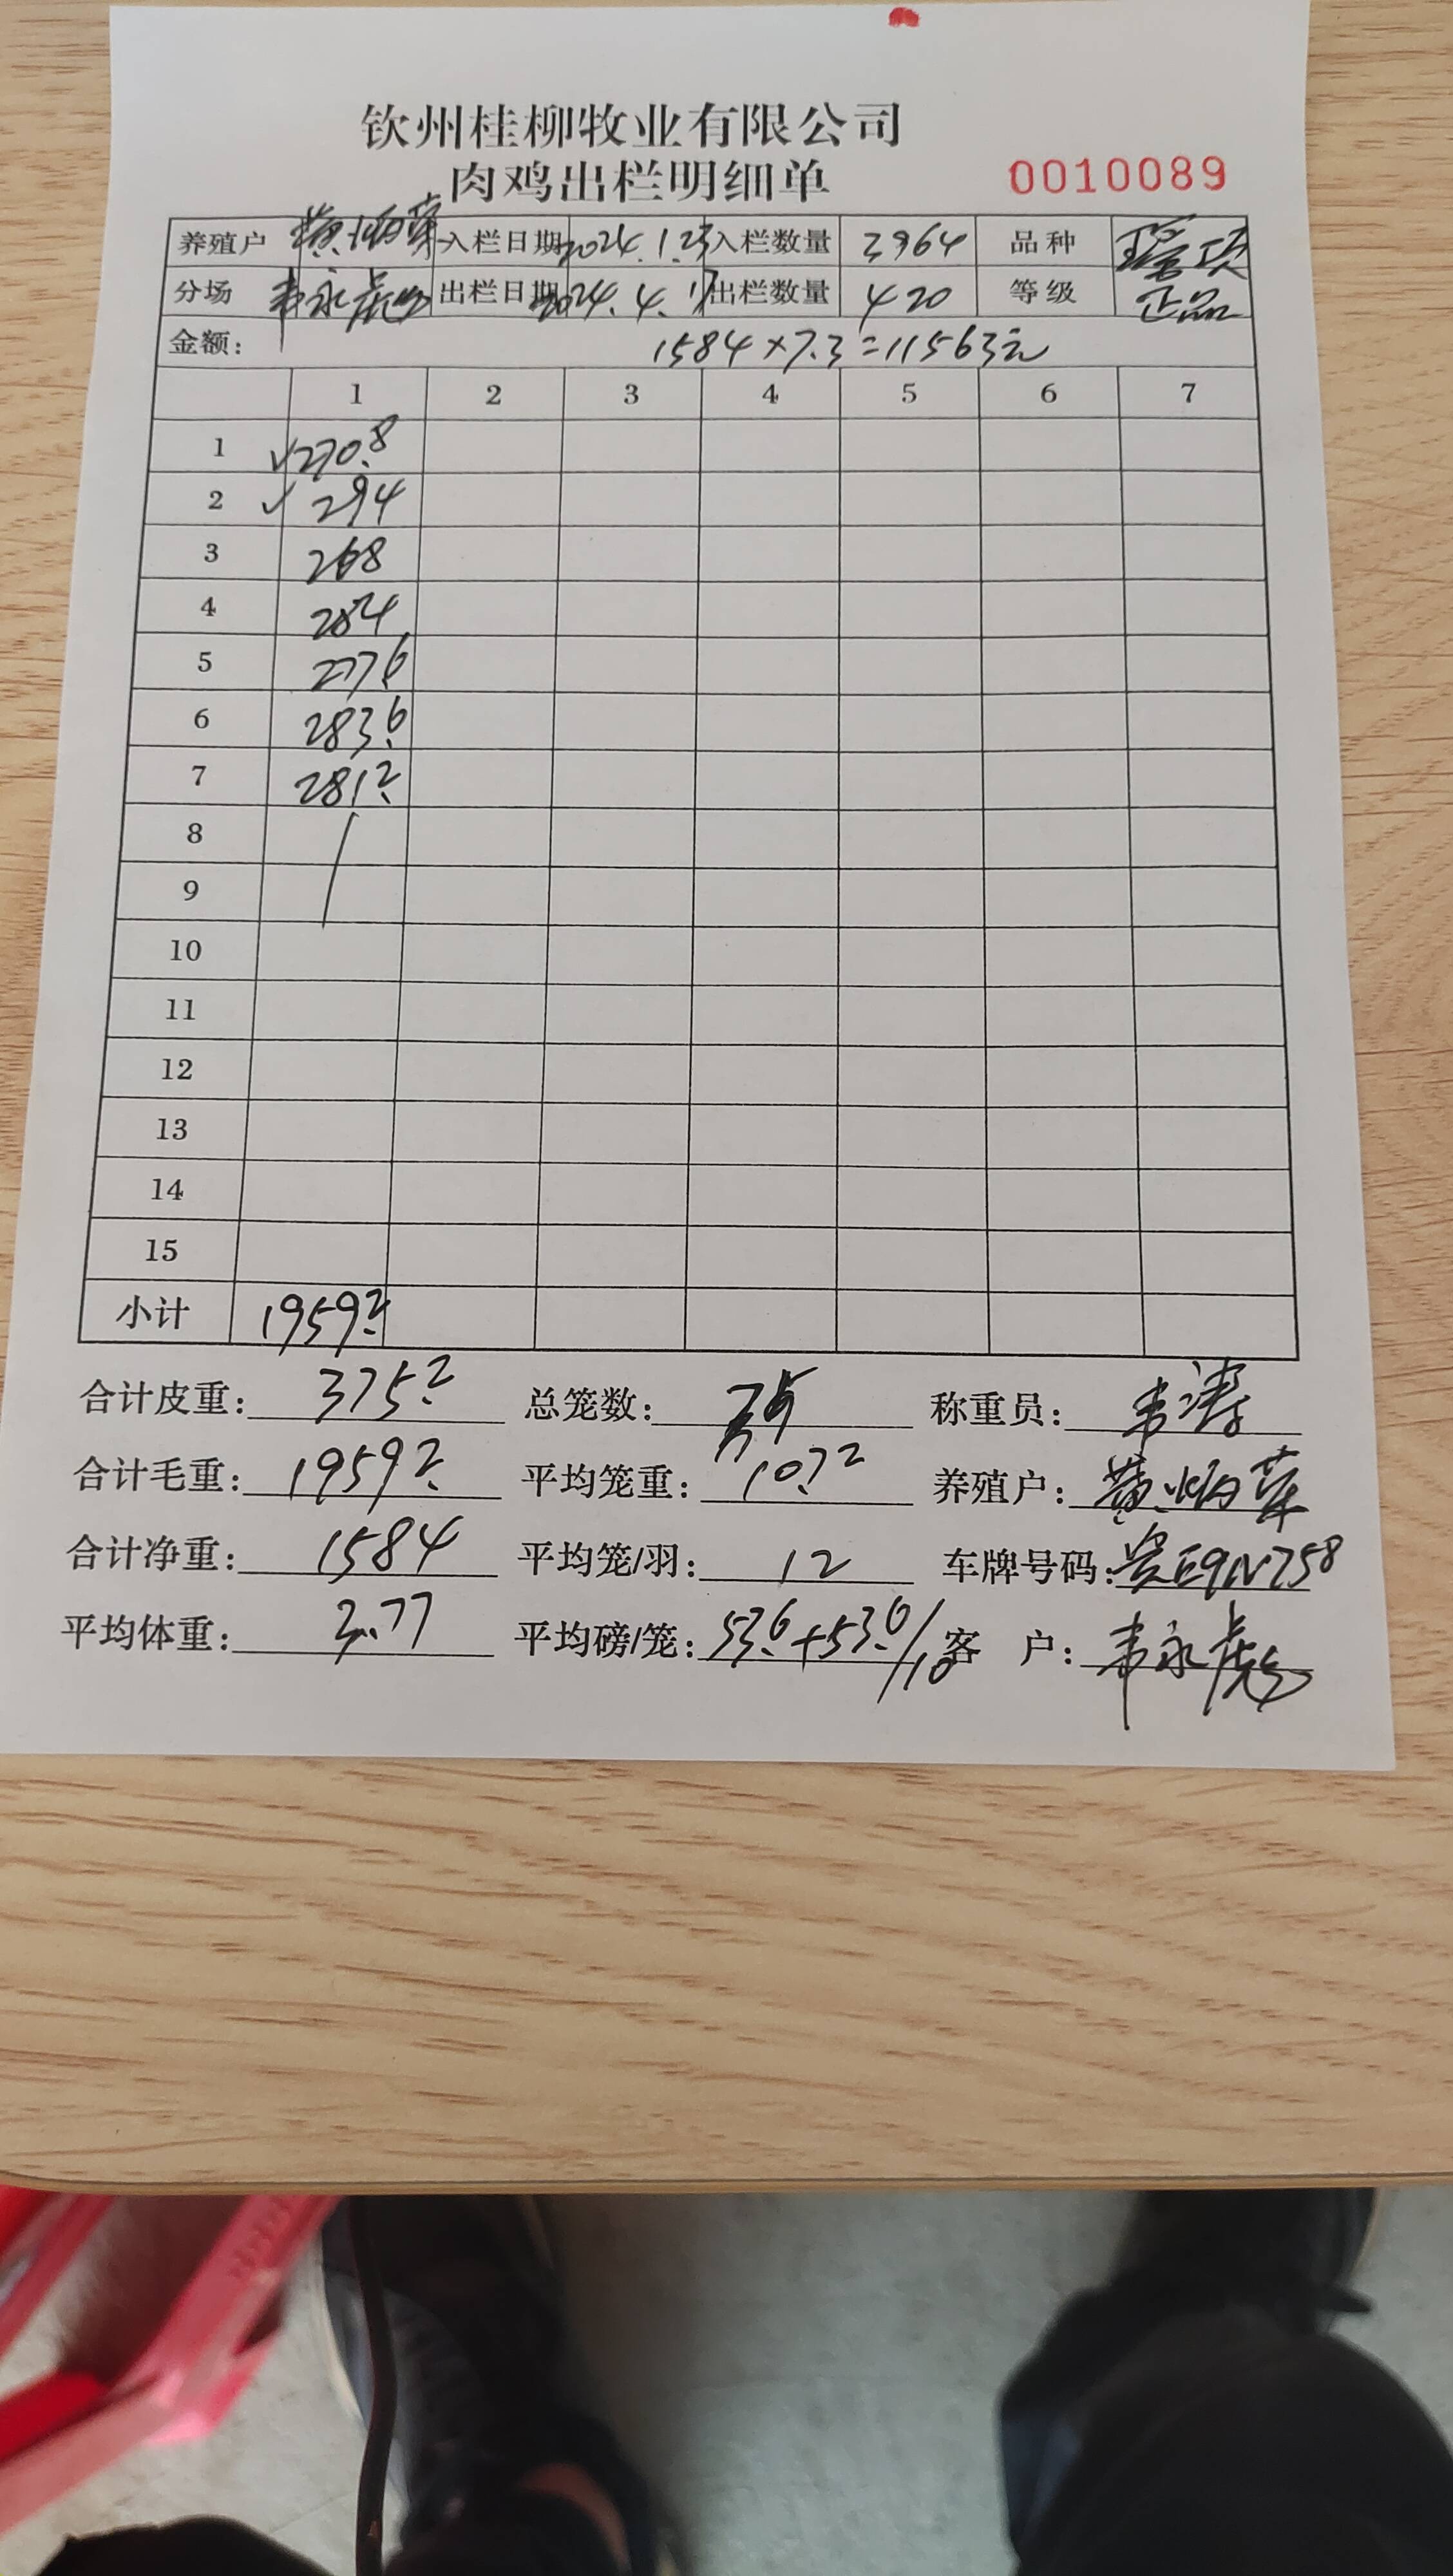 钦州桂柳牧业有限公司
肉鸡出栏明细单 0010089
养殖户 黄炳荣 入栏日期 2024.1.23 入栏数量 3964 品种 瑶鸡项
分场 韦永彪 出栏日期 2024.4.17 出栏数量 420 等级 正品
金额: 1584×7.3=11563元
1 2 3 4 5 6 7
1 √270.8
2 √294
3 268
4 284
5 277.6
6 283.6
7 281.2
8
9
10
11
12
13
14
15
小计 1959.2
合计皮重: 375.2 总笼数: 35 称重员: 韦涛
合计毛重: 1959.2 平均笼重: 10.72 养殖户: 黄炳荣
合计净重: 1584 平均笼/羽: 12 车牌号码: 贵E9N758
平均体重: 3.77 平均磅/笼: 53.6+53.6/10 客 户: 韦永彪